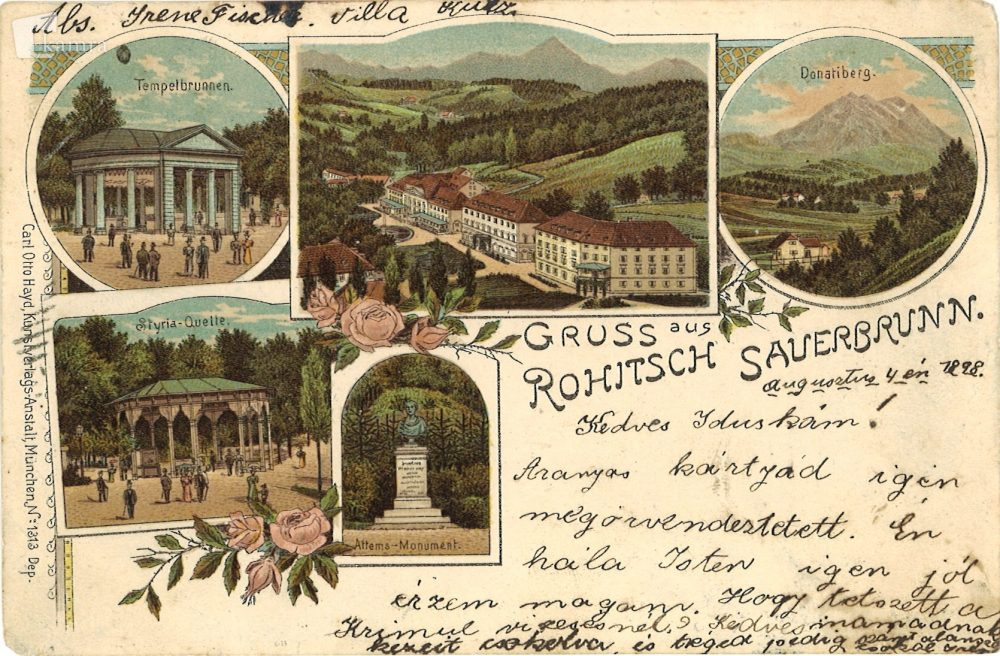 Abs. Irene Fischer. Villa
kamra
Tempelbrunnen.
Donatiberg.
Styria-Quelle.
Attems-Monument.
GRUSS aus
ROHITSCH SAUERBRUNN.
Carl Otto Hayd, Kunstverlags-Anstalt, München, No. 1313 Dep.
augusztus 4 én 1898.
Kedves Iduskám!
Aranyos kártyád igen
megörvendeztetett. Én
hála Isten igen jól
érzem magam. Hogy tetszett a
Krimul vizesésnél? Kedves mamádnak
kezeit csókolva, és téged pedig számtalanszor